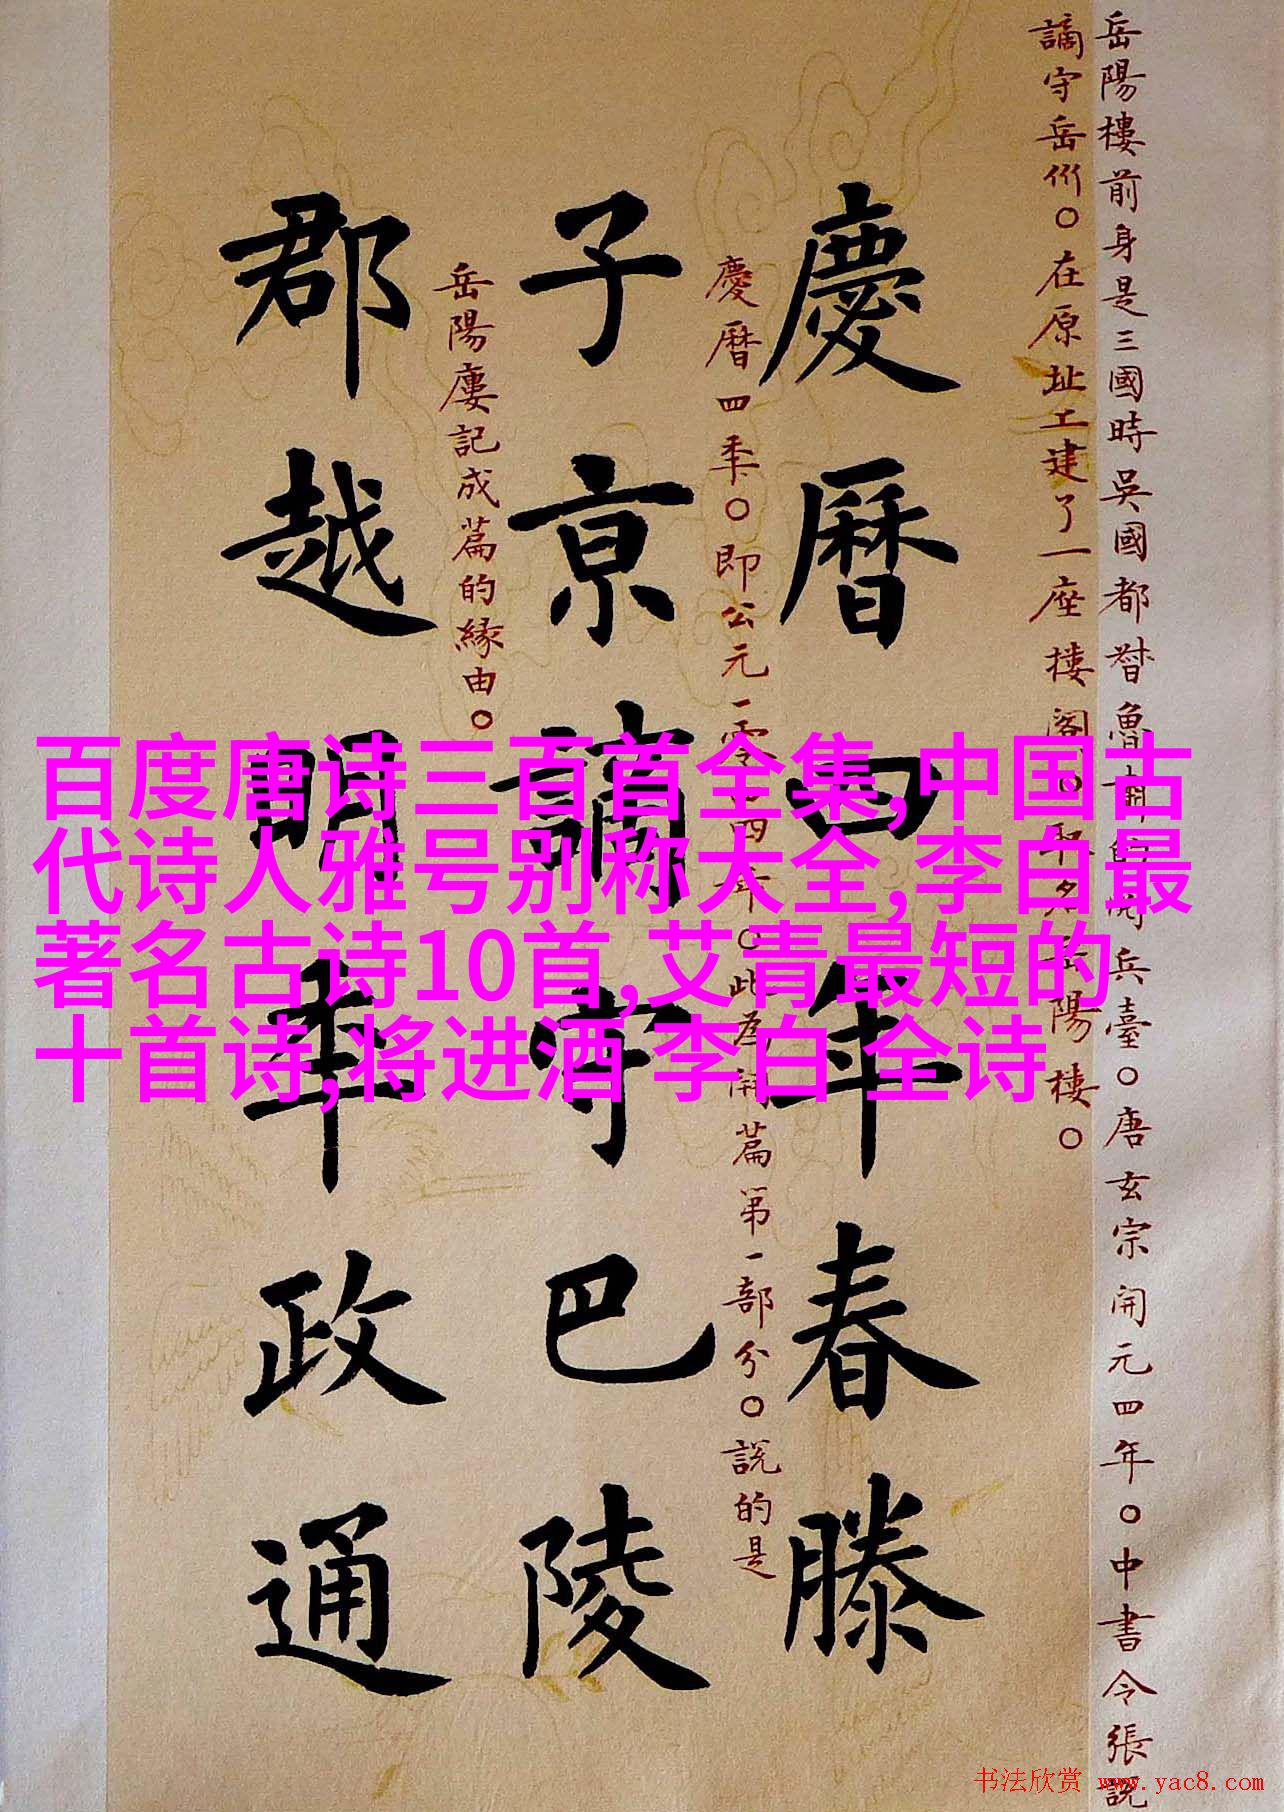 岳陽樓前身是三國時吳國都督魯肅的閱兵臺。唐玄宗開元四年。中書令張説
謫守岳州。在原址工建了一座樓閣。取名岳陽樓。
慶曆四年春滕
慶曆四季。即公元一零四四年。此為開篇第一部分。說的是
子京謫守巴陵
岳陽廔記成篇的緣由。
郡越明年政通
百度唐诗三百首全集,中国古
代诗人雅号别称大全,李白最
著名古诗10首,艾青最短的
十首诗,将进酒 李白 全诗
书法欣赏 www.yac8.com